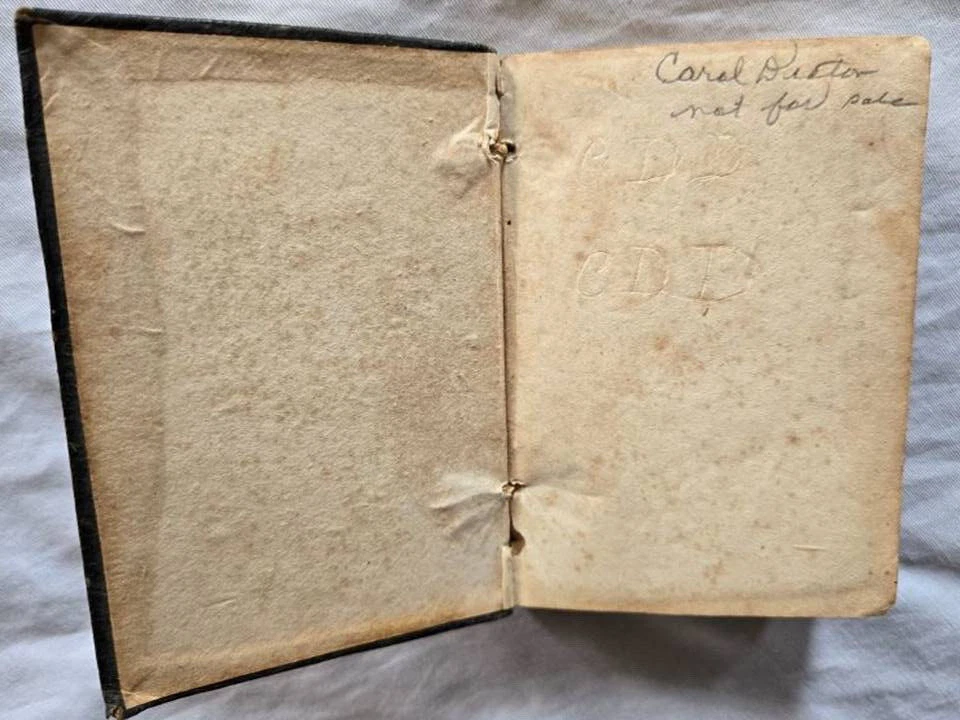 Carol Dutton
not for sale
C D D
C D D